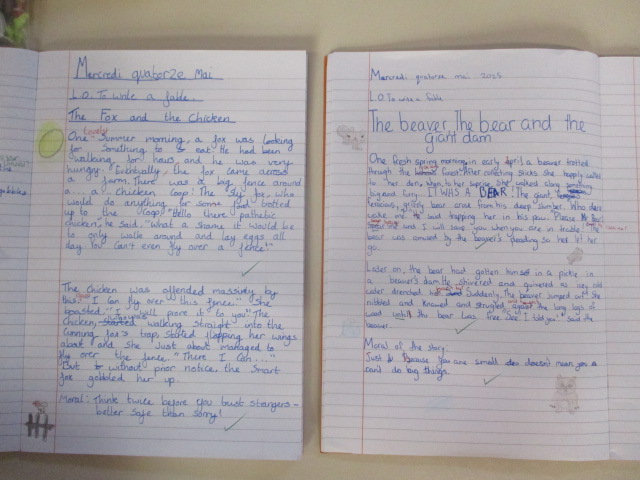 Mercredi quatorze Mai
L.O. To write a fable.
The Fox and the Chicken
lovely
One Summer morning, a fox was looking
for something to eat. He had been
walking for hours, and he was very
hungry. Eventually, the fox came across
a farm. There was a big fence around
a.... a chicken coop! The sly fox, who
would do anything for some food trotted
up to the coop. "Hello there pathetic
chicken" he said, "what a shame it would be
to only walk around and lay eggs all
day. You can't even fly over a fence!"
The chicken was offended massively by
this. "I can fly over this fence." She
boasted. "I will prove it to you". The
chicken, walking straight into the
cunning fox's trap, started flapping her wings
about and she just about managed to
fly over the fence. "There I can...."
But without prior notice, the smart
fox gobbled her up.
Moral: Think twice before you trust strangers -
better safe than sorry!
Mercredi quatorze mai 2025
L.O To write a fable
The beaver The bear and the
giant dam
One fresh spring morning in early April a beaver trotted
through the forest. After collecting sticks she happily walks
to her den when to her surprise she walked along
big and furry. I WAS A BEAR! The giant,
ferocious, grizzly bear arose from his deep slumber. Who dare
wake me. He said trapping her in his paw. Please Mr Bear
spare me and I will save you when you are in trouble. The
bear was amused by the beaver's pleading so he let her
go.
Later on, the bear had gotten himself in a pickle in
a beaver's dam. He shivered and quivered as icy cold
water drenched Suddenly, The beaver jumped out she
nibbled and knawed and struggled against the long legs of
wood until the bear was free. See I told you" said the
beaver.
Moral of the story
Just because you are small doesn't mean you
can't do big things.